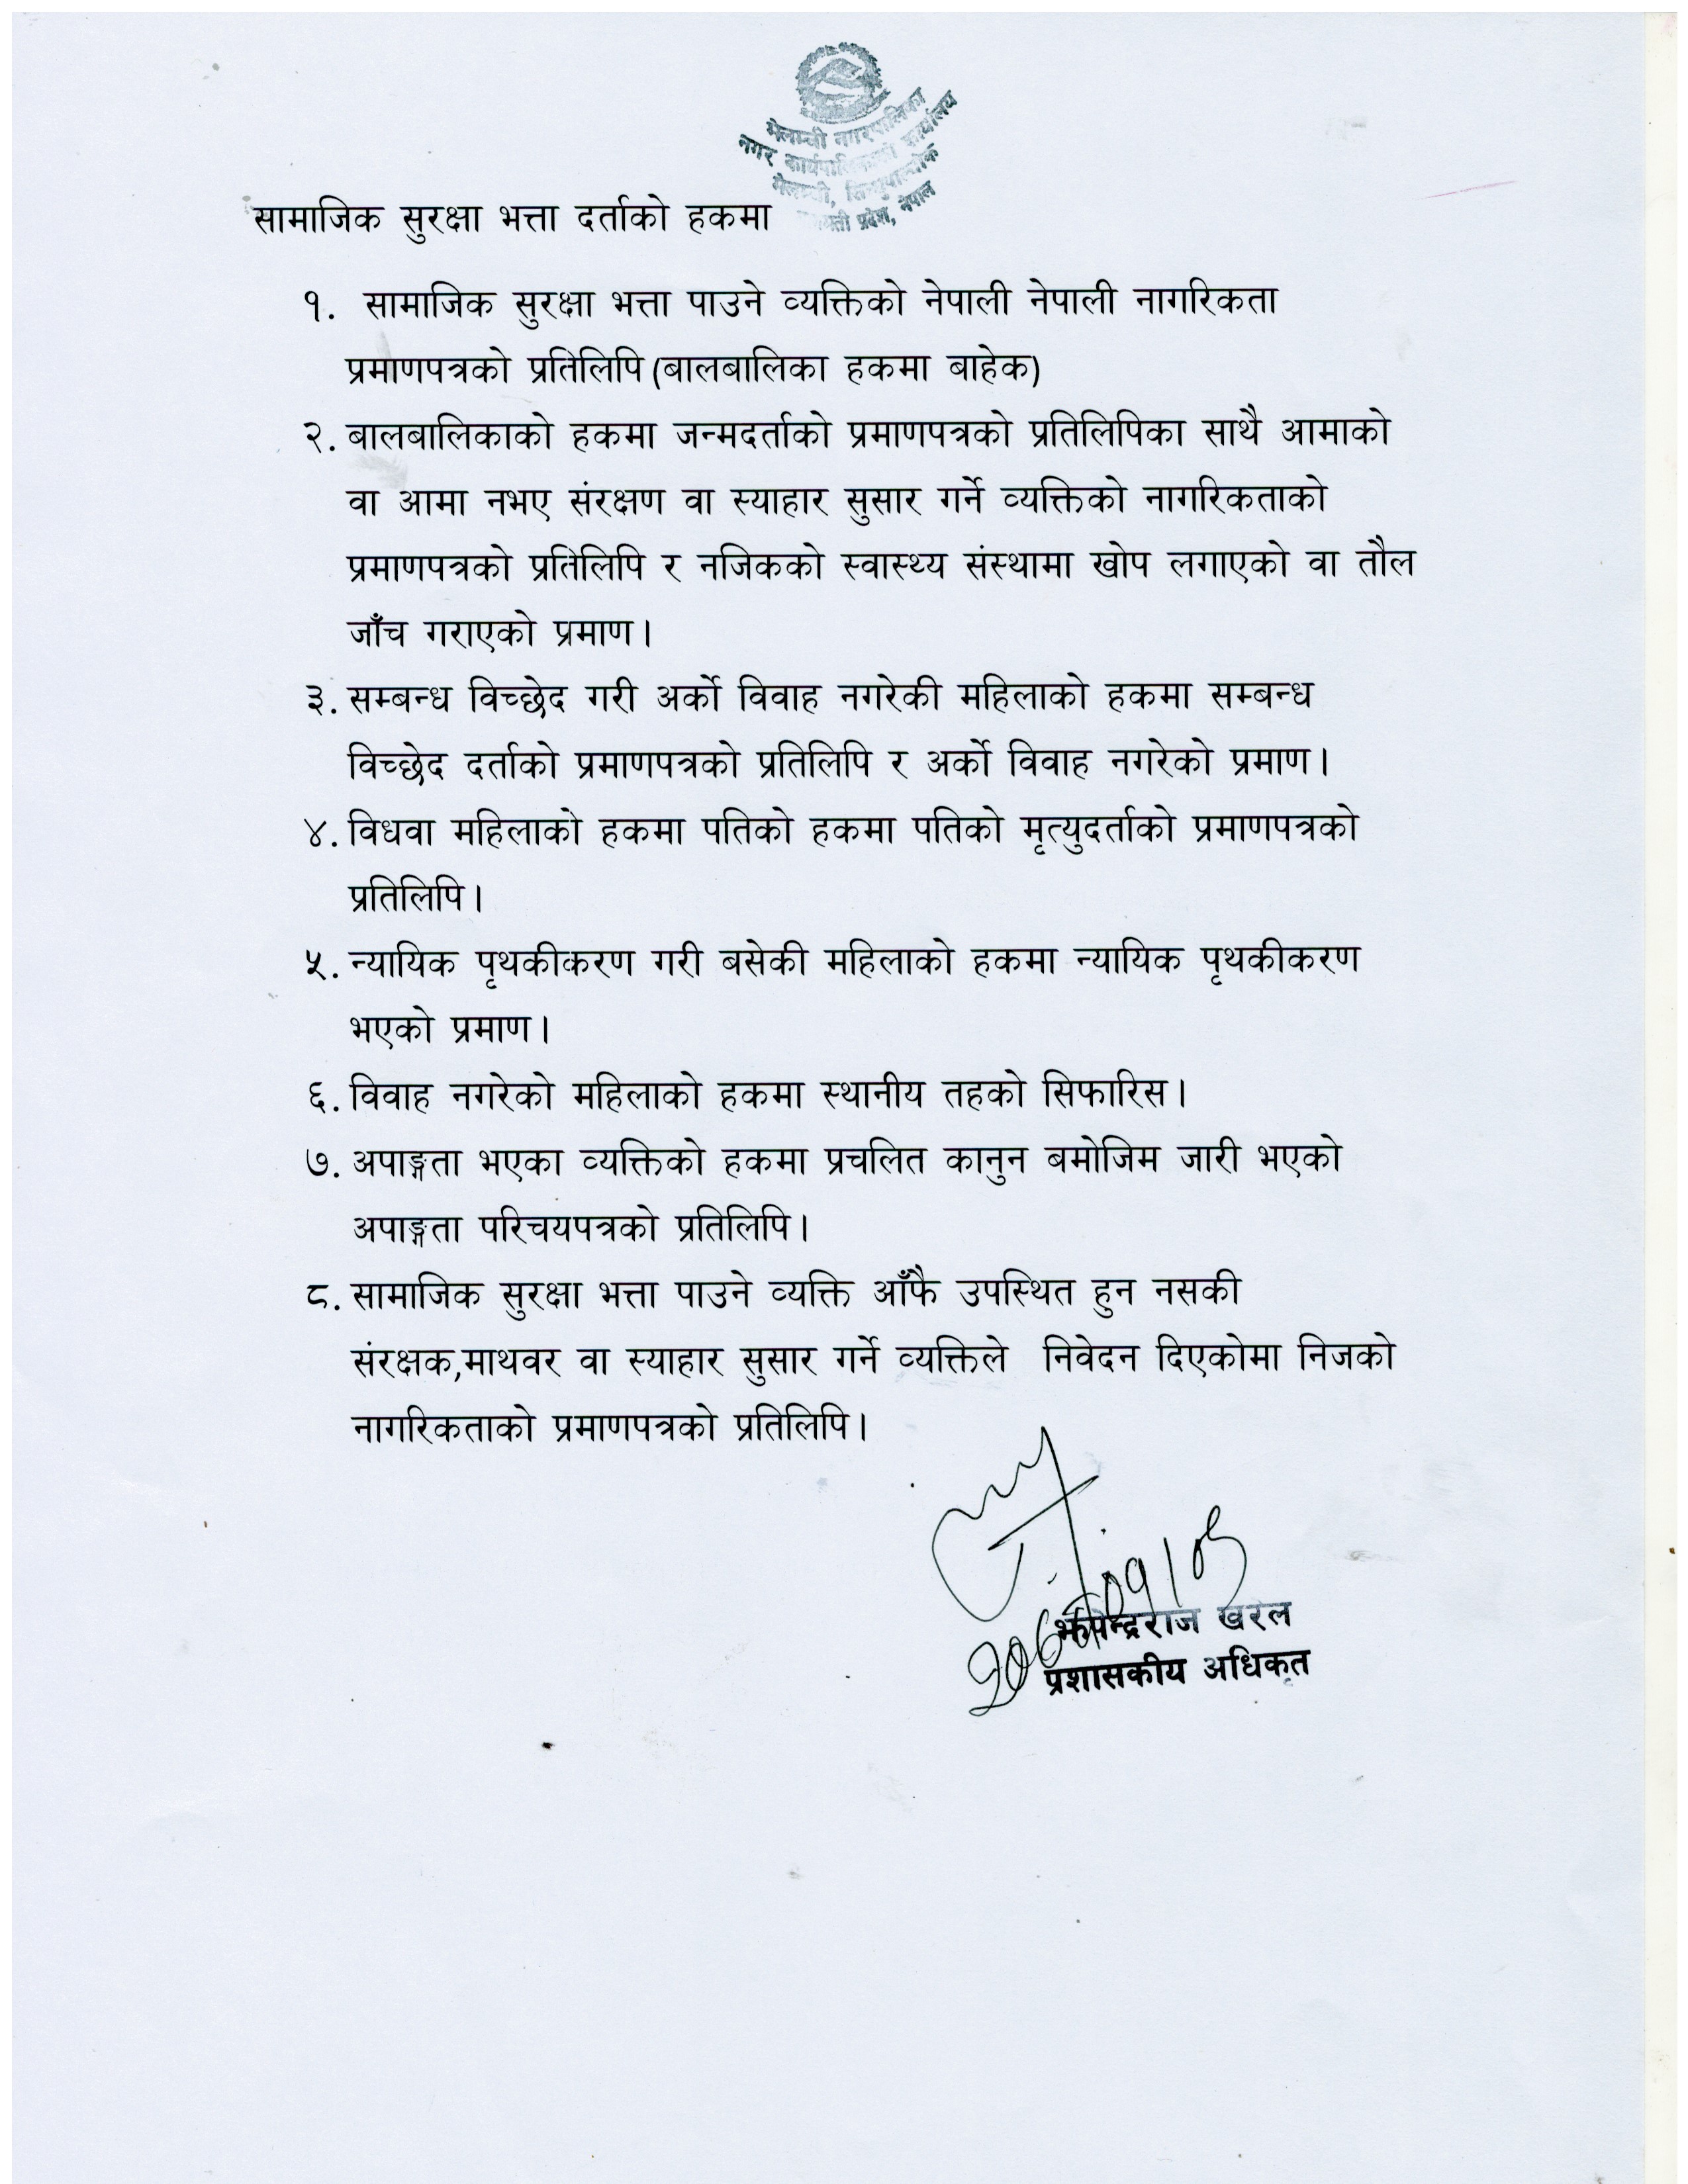 मेलम्ची नगरपालिका
नगर कार्यपालिकाको कार्यालय
मेलम्ची, सिन्धुपाल्चोक
प्रदेश, नेपाल
सामाजिक सुरक्षा भत्ता दर्ताको हकमा
१. सामाजिक सुरक्षा भत्ता पाउने व्यक्तिको नेपाली नेपाली नागरिकता
प्रमाणपत्रको प्रतिलिपि (बालबालिका हकमा बाहेक)
२. बालबालिकाको हकमा जन्मदर्ताको प्रमाणपत्रको प्रतिलिपिका साथै आमाको
वा आमा नभए संरक्षण वा स्याहार सुसार गर्ने व्यक्तिको नागरिकताको
प्रमाणपत्रको प्रतिलिपि र नजिकको स्वास्थ्य संस्थामा खोप लगाएको वा तौल
जाँच गराएको प्रमाण।
३. सम्बन्ध विच्छेद गरी अर्को विवाह नगरेकी महिलाको हकमा सम्बन्ध
विच्छेद दर्ताको प्रमाणपत्रको प्रतिलिपि र अर्को विवाह नगरेको प्रमाण।
४. विधवा महिलाको हकमा पतिको हकमा पतिको मृत्युदर्ताको प्रमाणपत्रको
प्रतिलिपि।
५. न्यायिक पृथकीकरण गरी बसेकी महिलाको हकमा न्यायिक पृथकीकरण
भएको प्रमाण।
६. विवाह नगरेको महिलाको हकमा स्थानीय तहको सिफारिस।
७. अपाङ्गता भएका व्यक्तिको हकमा प्रचलित कानुन बमोजिम जारी भएको
अपाङ्गता परिचयपत्रको प्रतिलिपि।
८. सामाजिक सुरक्षा भत्ता पाउने व्यक्ति आँफै उपस्थित हुन नसकी
संरक्षक,माथवर वा स्याहार सुसार गर्ने व्यक्तिले निवेदन दिएकोमा निजको
नागरिकताको प्रमाणपत्रको प्रतिलिपि।
खरेल
प्रशासकीय अधिकृत